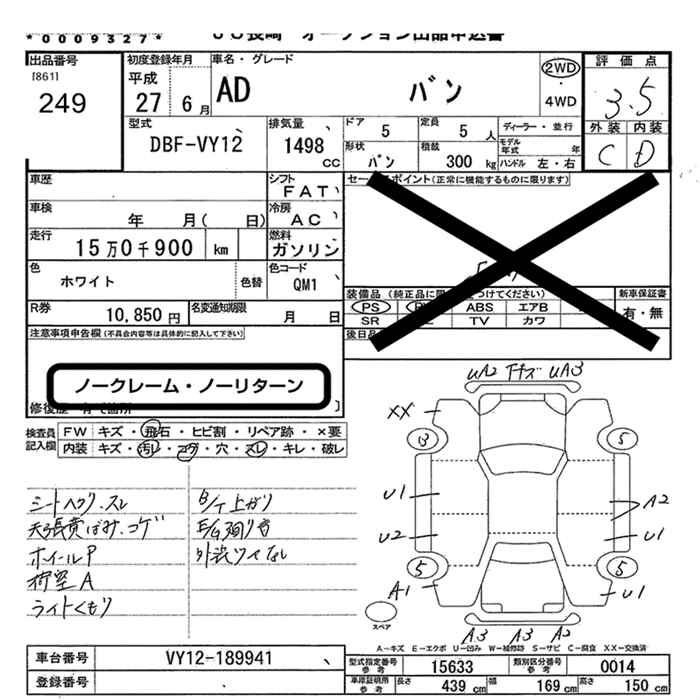 *0009327* JU長崎 オークション出品申込書
出品番号
[861]
249
初度登録年月
平成
27 6月
車名・グレード
AD バン
2WD
・
4WD
評価点
3.5
外装 内装
C D
型式
DBF-VY12
排気量
1498
CC
ドア 5
形状 バン
定員 5人
積載 300 kg
ディーラー・並行
モデル年式 年
ハンドル 左・右
車歴
シフト
FAT
セールスポイント(正常に機能するものに限ります)
車検
年 月( 日)
冷房
AC
走行
15万0千900 km
燃料
ガソリン
色
ホワイト
色替
色コード
QM1
装備品
PS
ABS エアB
SR TV カワ
新車保証書
有・無
R券
10,850円
名変通知期限
月 日
後日品
注意事項申告欄(不具合内容等は具体的に記入して下さい)
ノークレーム・ノーリターン
検査員
記入欄
FW キズ・飛石・ヒビ割・リペア跡・×要
内装 キズ・汚レ・コゲ・穴・スレ・キレ・破レ
シートヘタリ.スレ
天張黄ばみ.コゲ
ホイールP
荷室A
ライトくもり
B/T上がり
E/G廻り音
外装ツヤなし
UA2 下キズ UA3
XX
3 5
U1 A2
U2 U1
5 5
A1 U1
スペア
A3 A3 A2
A-キズ E-エクボ U-凹み W-補修跡 S-サビ C-腐食 XX-交換済
車台番号
VY12-189941
登録番号
型式指定番号
参考
15633
類別区分番号
参考
0014
車庫証明所
参考
長さ 439 cm
幅 169 cm
高さ 150 cm